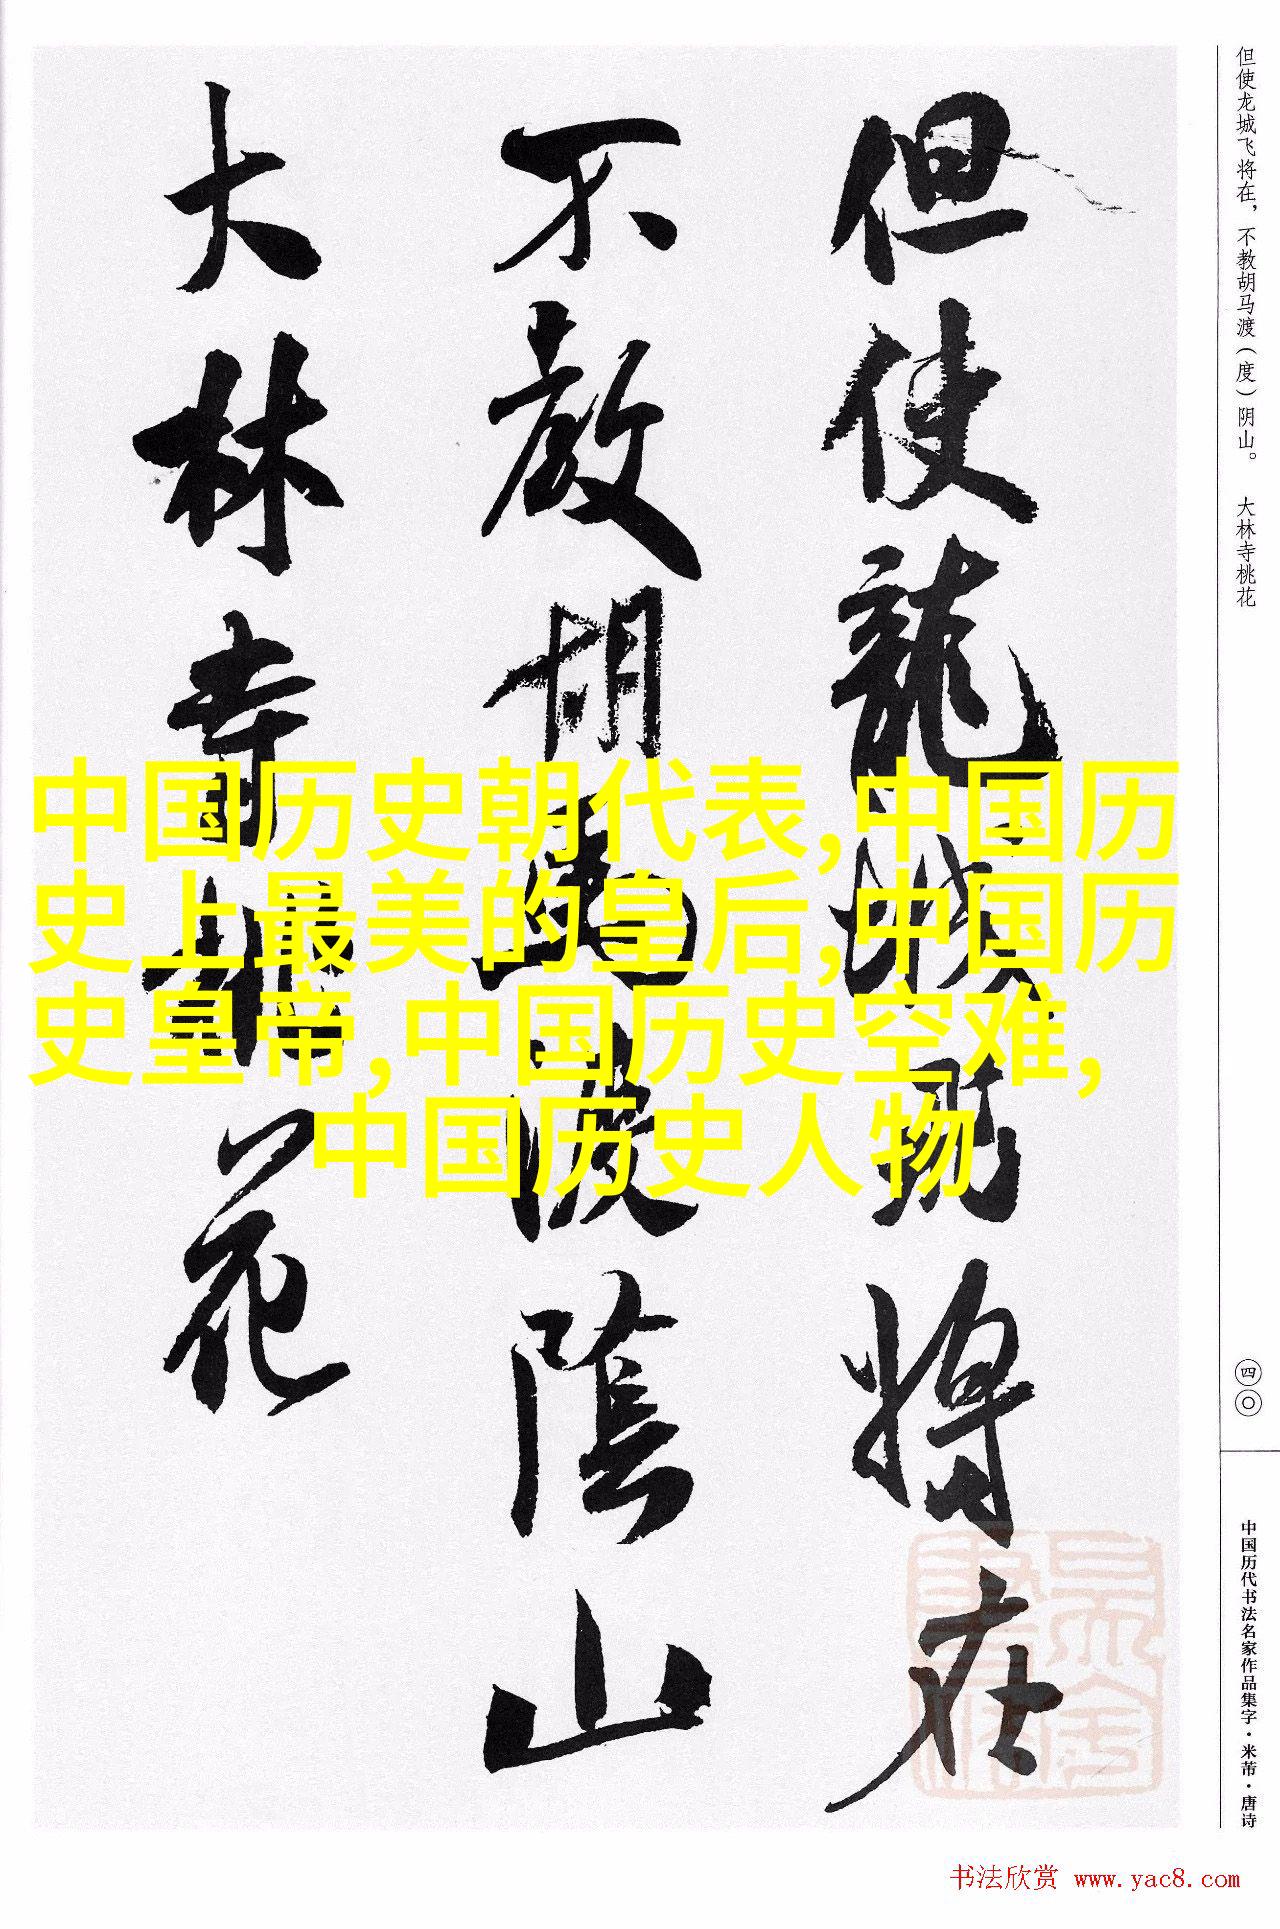 但使龙城飞将在，不教胡马渡（度）阴山。 大林寺桃花
但使龍城飛将在
不教胡馬渡陰山
大林寺桃花
中国历史朝代表,中国历
史上最美的皇后,中国历
史皇帝,中国历史空难,
中国历史人物
四〇
中国历代书法名家作品集字·米芾·唐诗
书法欣赏 www.yac8.com